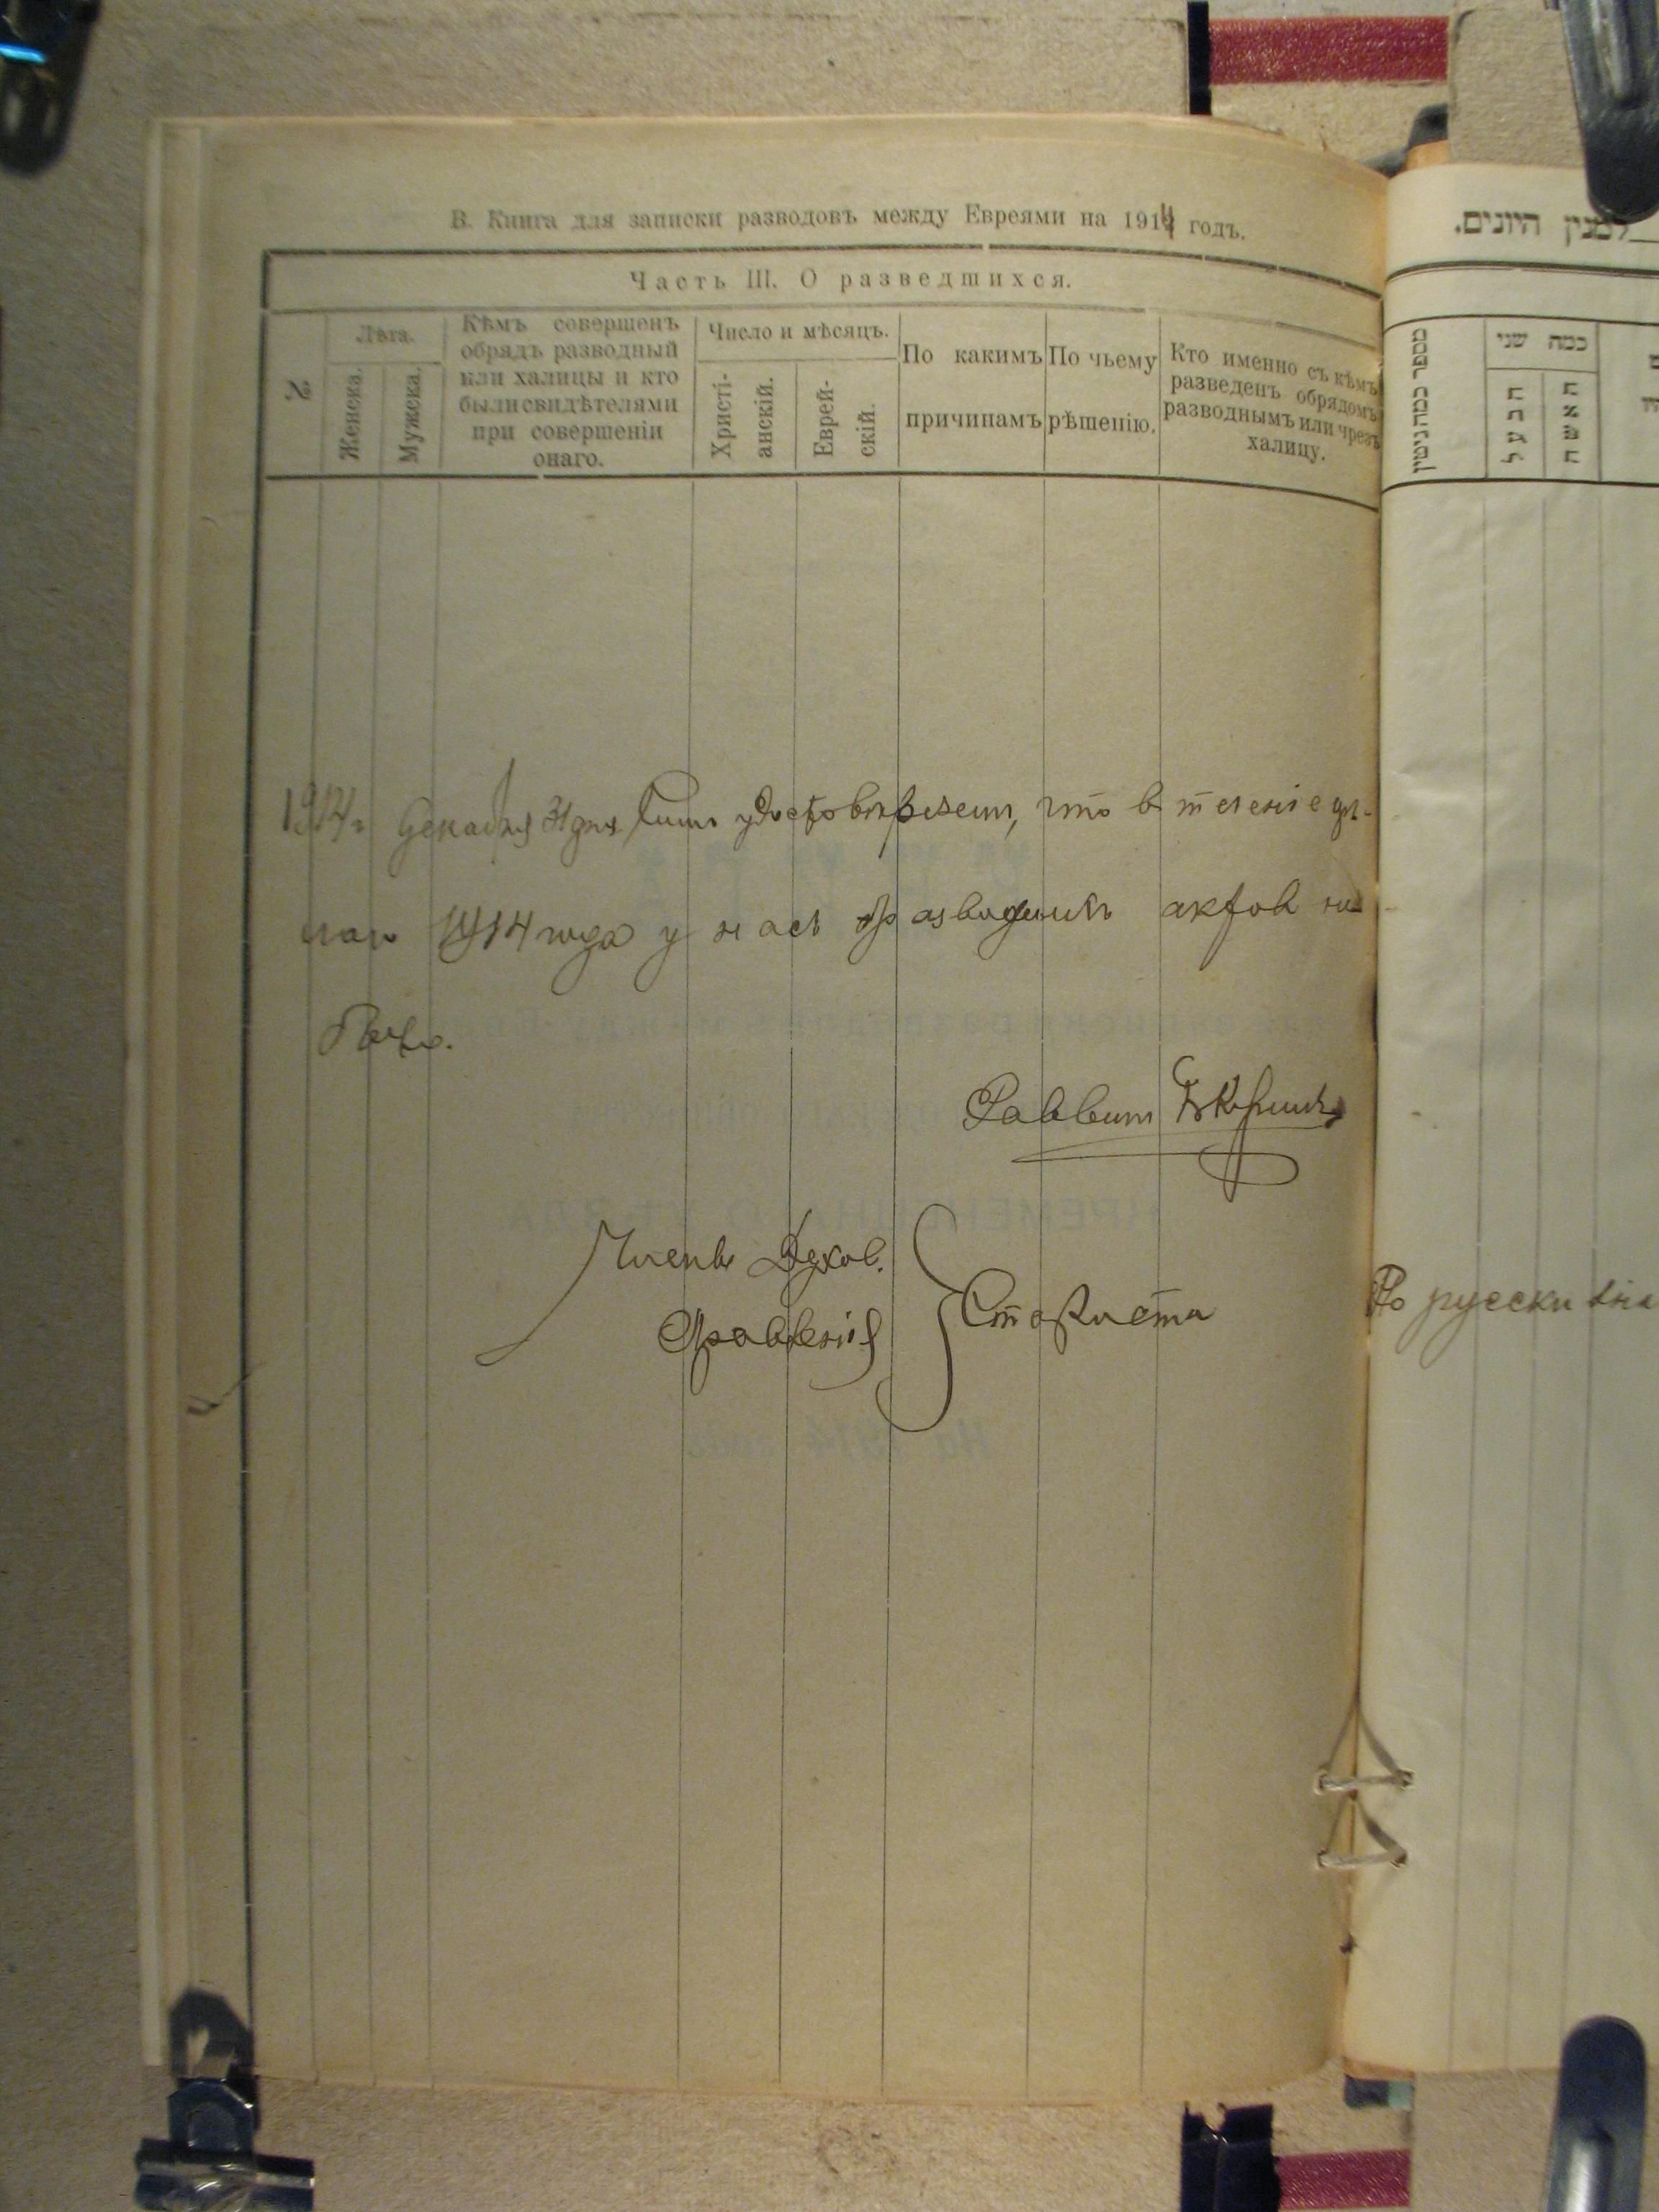 В. Книга для записки разводовъ между Евреями на 1914 годъ.
Часть III. О разведшихся.
№
Лѣта.
Женска.
Мужска.
Кѣмъ совершенъ
обрядъ разводный
или халицы и кто
были свидѣтелями
при совершеніи
онаго.
Число и мѣсяцъ.
Христі-
анскій.
Еврей-
скій.
По какимъ
причинамъ
По чьему
рѣшенію.
Кто именно съ кѣмъ
разведенъ обрядомъ
разводнымъ или чрезъ
халицу.
1914 г. Декабря 31 дня Симъ удостовѣряемъ, что в теченіе цѣ-
лаго 1914 года у насъ разводныхъ актов не
было.
Раввинъ
Члены Духов.
Правленія
Староста
למנין היונים.
מספר כמה גיטין
כמה שני
הבעל
האשה
По русски